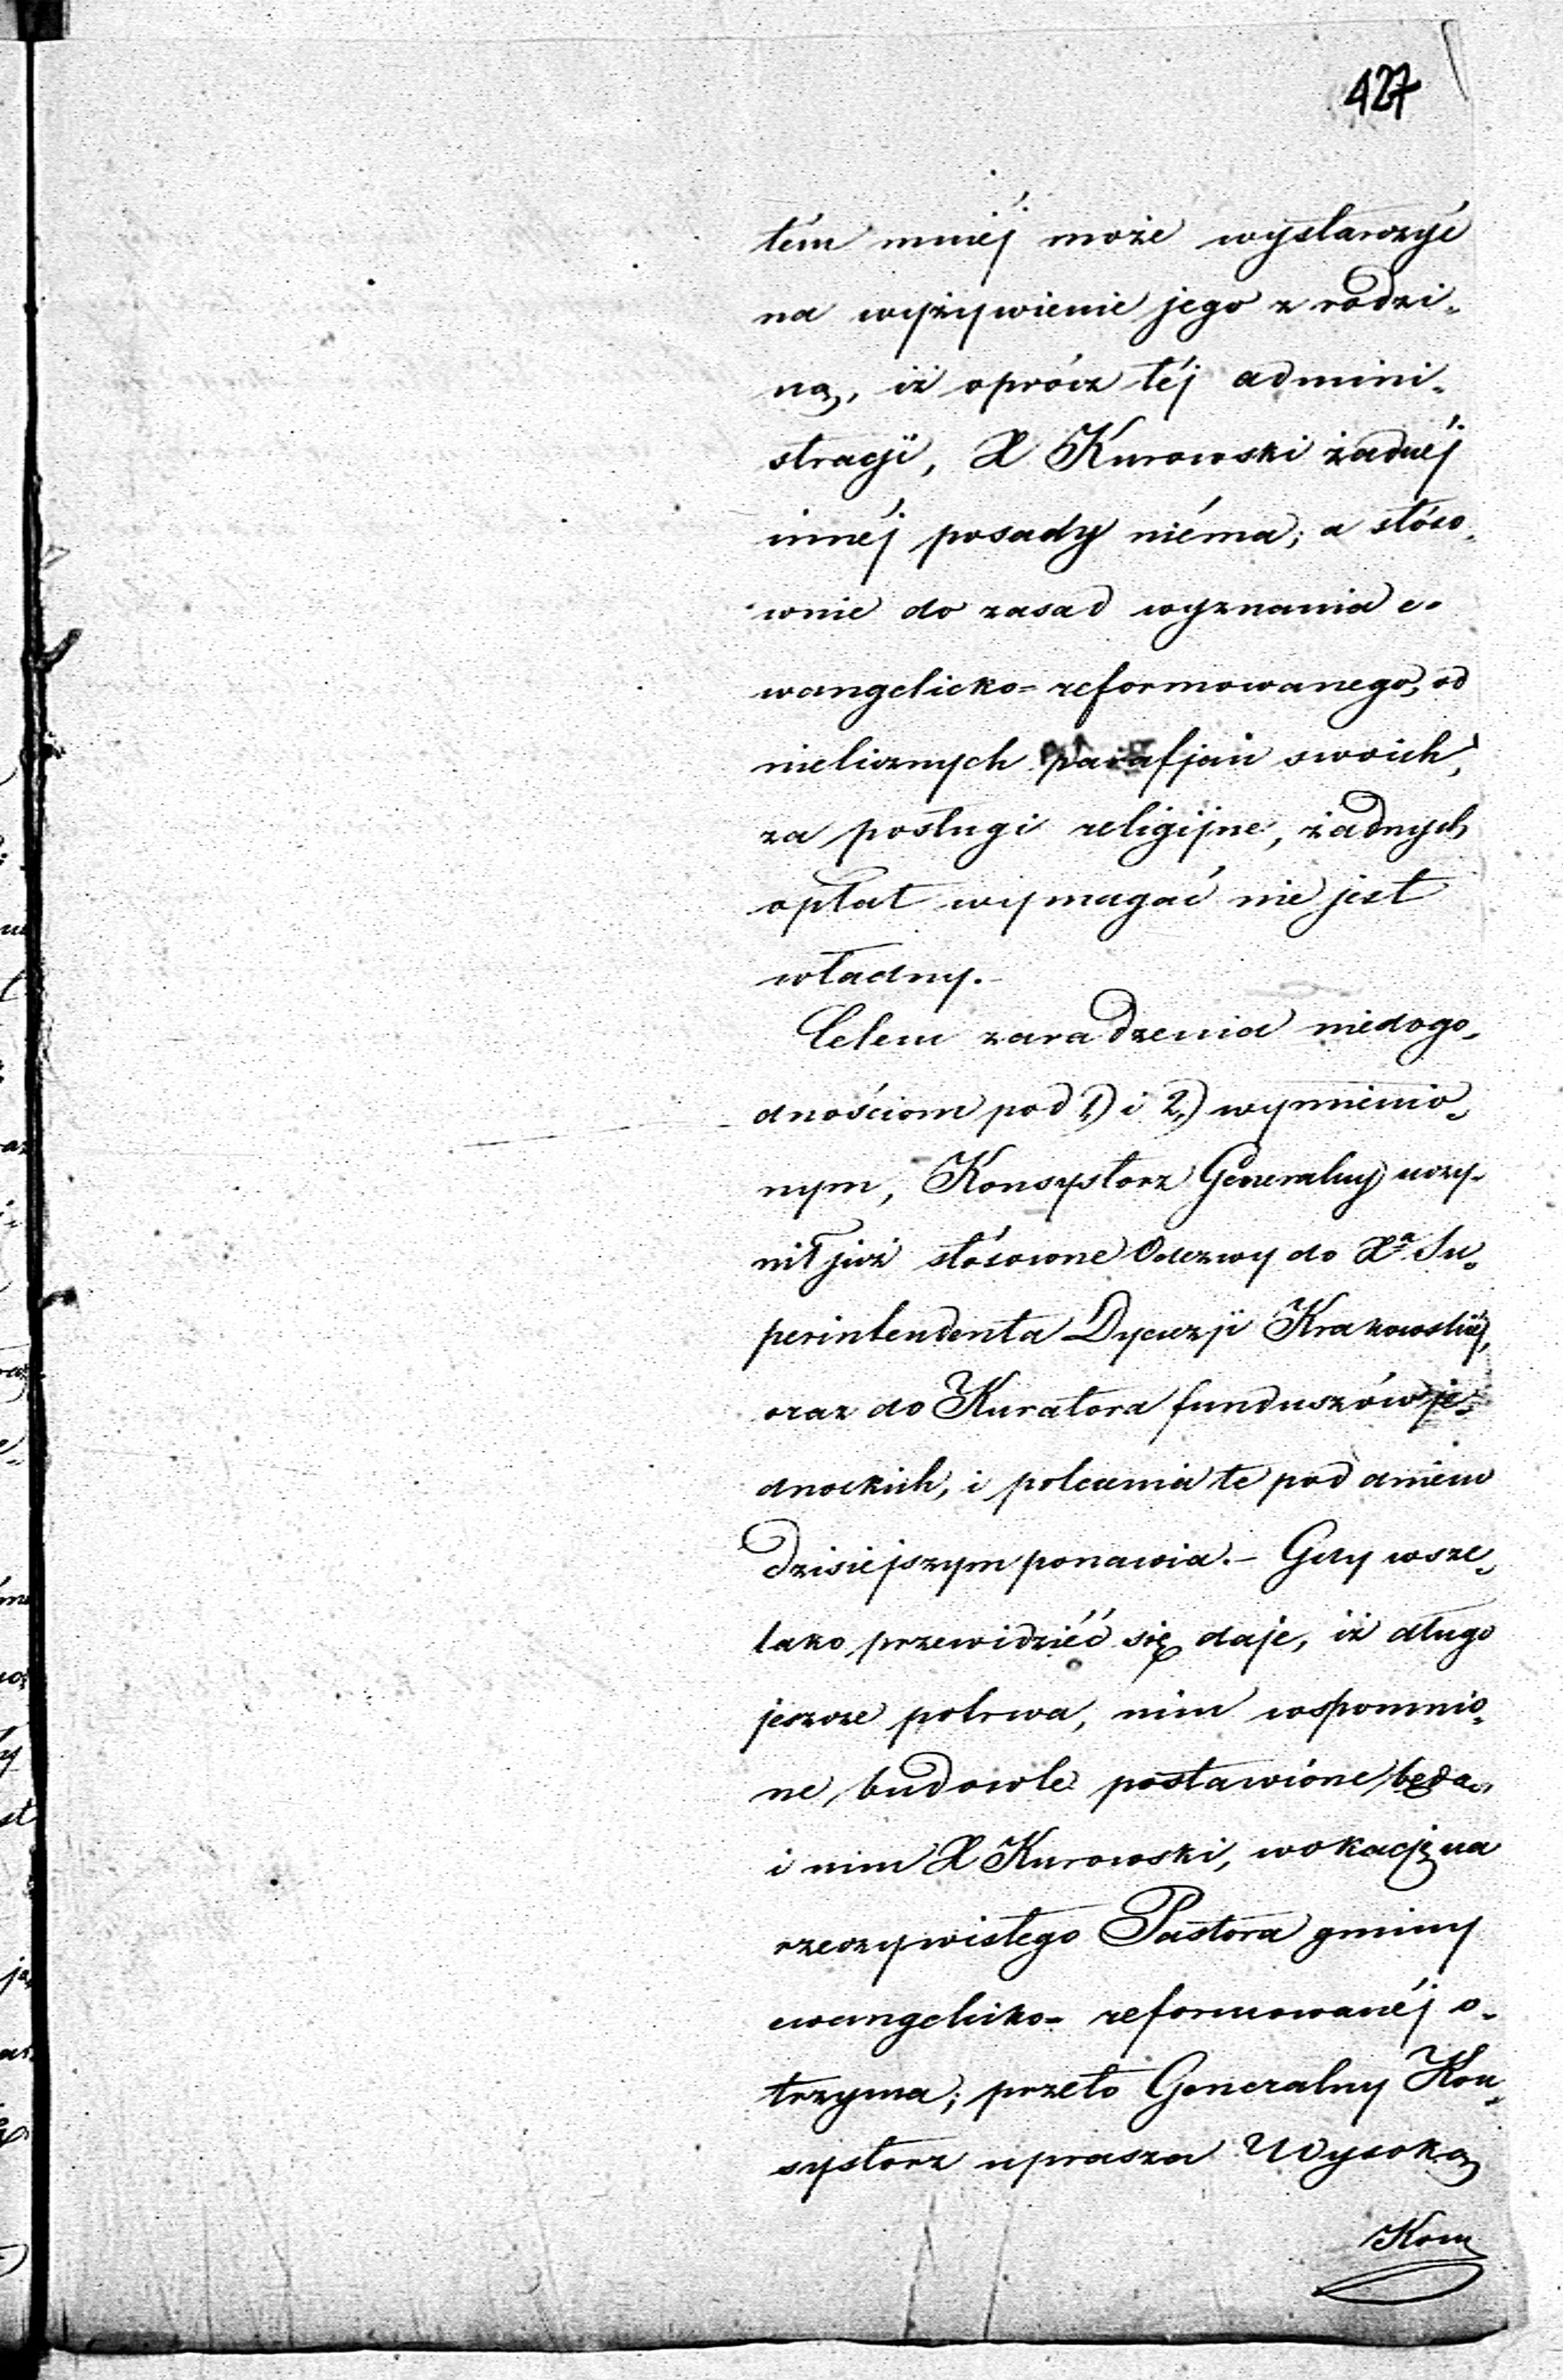 427
tém mniéj może wystarczyć
na wyżywienie jego z rodzi-
ną, iż oprócz téj admini-
stracji, X Kurowski żadnéj
innéj posady niéma; a stóso-
wnie do zasad wyznania e-
wangelicko-reformowanego, od
nielicznych parafjan swoich,
za posługi religijne, żadnych
opłat wymagać nie jest
władny.-
Celem zaradzenia niedogo-
dnościom pod 1,) i 2,) wymienio-
nym, Konsystorz Generalny uczy-
nił już stósowne Odezwy do Xa Su-
perintendenta Dyecezji Krakowskiéj,
oraz do Kuratora funduszów je-
dnockich, i polecenia te pod dniem
dzisiejszym ponawia.- Gdy wsze-
lako przewidziéć się daje, iż długo
jeszcze potrwa, nim wspomnio-
ne budowle postawione będą,
i nim X Kurowski, wokację na
rzeczywistego Pastora gminy
ewangelicko-reformowanéj o-
trzyma; przeto Generalny Kon-
systorz uprasza Wysoką
Kom